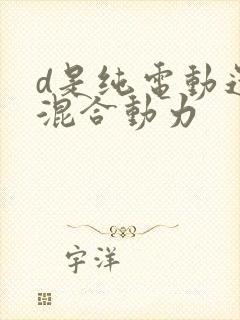 d是纯電動還
混合動力
宇洋